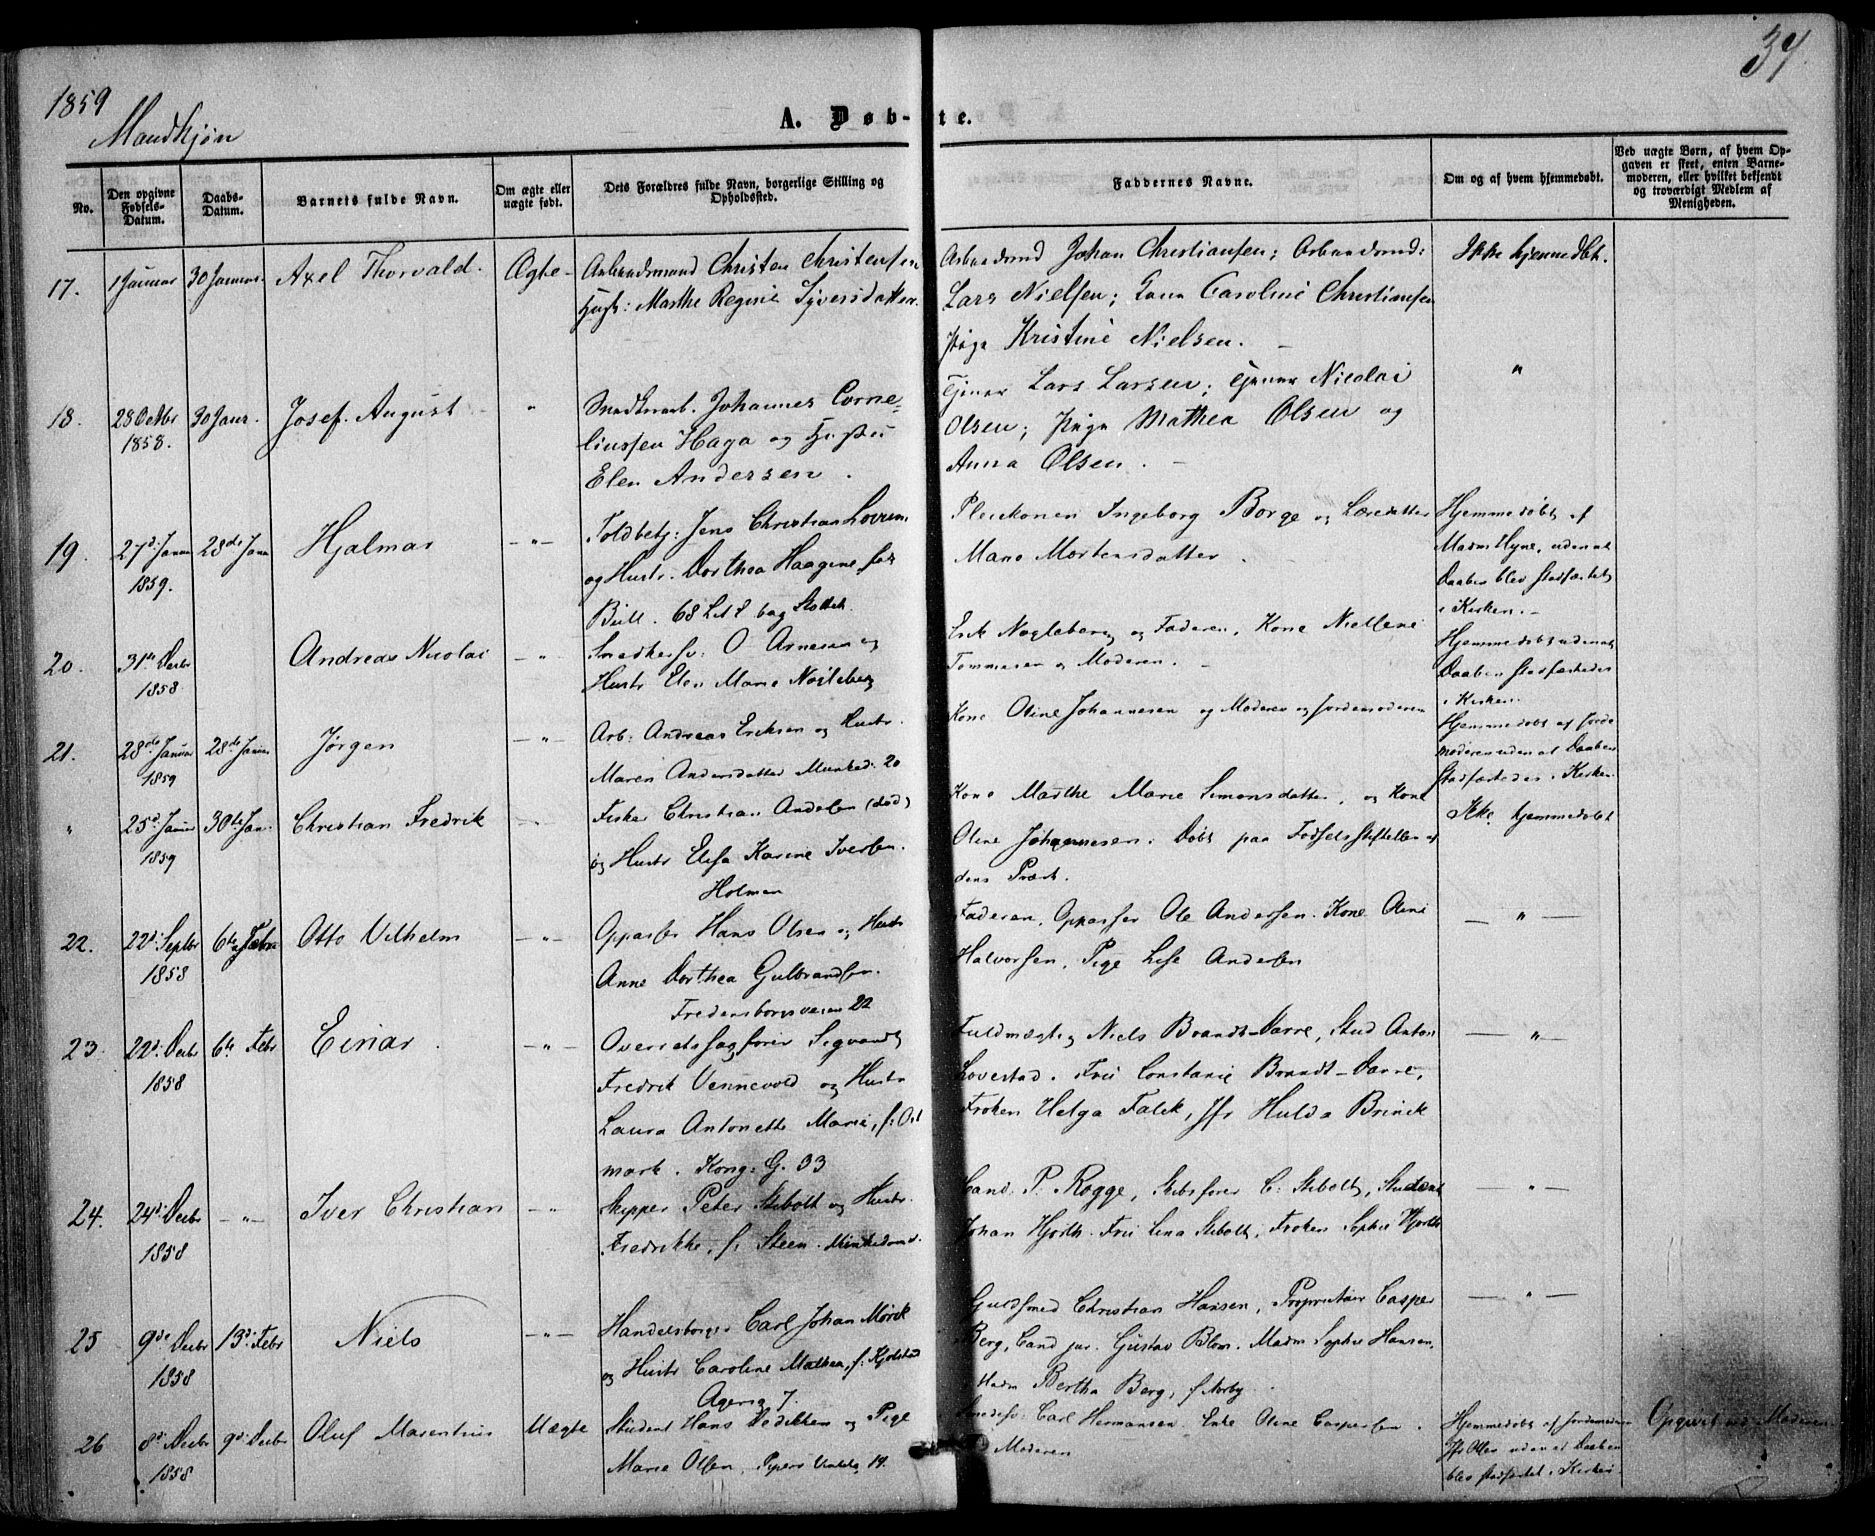 1859
37
Mandkjøn
A. Døb-te.
No.
Den opgivne Fødsels-Datum.
Daabs-Datum.
Barnets fulde Navn.
Om ægte eller uægte født.
Dets Forældres fulde Navn, borgerlige Stilling og Opholdssted.
Faddernes Navne.
Om og af hvem hjemmedøbt.
Ved uægte Børn, af hvem Opgaven er skeet, enten Barnemoderen, eller hvilket bekjendt og troværdigt Medlem af Menigheden.
17. 1 Januar 30 Januar Axel Thorvald. Ægte
Arbeidsmand Christen Christensen
Hust: Marthe Regine Syversdatter
Arbeidsmd Johan Christiansen; Arbeidsmd:
Lars Nielsen; Kone Caroline Christiansen
Pige Kristine Nielsen.
Ikke hjemmedbt.
18. 28 Octbr 1858. 30 Janr. Josef August "
Snedkerarb. Johannes Corne-
liussen Haga og Hustru
Elen Andersen.
Tjener Lars Larsen; Tjener Nicolai
Olsen; Pige Mathea Olsen og
Anna Olsen.
"
19. 27d Janu 1859. 28de Janu Hjalmar - " -
Toldbetj: Jens Christian
og Hustr. Dorthea Haagine fød
Bull. 68 Litr bag Slottet.
Pleiekonen Ingeborg Borge og Læredatter
Mano Mortensdatter.
Hjemmedøbt af
Madm Hyne, uden at
Daaben blev stadfæstet
i Kirken.
20. 31te Decbr 1858. Andreas Nicolai - " -
Snedkersv: O Arnesen og
Hustr Elen Marie Nøgleberg
Erik Nøgleberg og Faderen, Kone Niellene
Tommesen og Moderen.
Hjemmedøbt uden at
Daaben stadfæstedes
i Kirken.
21. 28de Januar 1859 28de Januar Jørgen - " -
Arb: Andreas Eriksen og Hustr.
Maren Andersdatter Munked: 20
Kone Oline Johannesen og Moderen og Jordemoderen
Hjemmedøbt af Jorde
moderen uden at Daaben
stadfæstedes i Kirken.
" 25d Januar 1859 30te Jan. Christian Fredrik
Fisker Christian Andersen (død)
og Hustr Elisa Karine Iversen.
Holmen
Kone Marthe Marie Simonsdatter, og Kone
Oline Johannesen. Døbt paa Fødselsstiftelsen af
dens Præst.
Ikke hjemmedøbt
22. 22d Septbr 1858 6te Febru Otto Vilhelm - " -
Oppasser Hans Olsen og Hustr
Anne Dorthea Gulbrandsen.
Fredensborgsveien 22
Faderen, Oppasser Ole Andersen. Kone Oline
Halvorsen, Pige Lise Andersen
- " -
23. 22d Decbr 1858 6te Febr Einar. - " -
Overretssagfører Sigvardt
Fredrik Vennevold og Hustr
Laura Antonette Marie, f: Ost
mark. Kong: G. 33
Fuldmægtig Niels Brandt-Darre, Stud Anton
Lovestad. Fru Constance Brandt-Darre,
Frøken Helga Falck, Jfr Hulda Brinck
- " -
24. 24d Decbr 1858 - " - Iver Christian - " -
Skipper Peter Stibolt og Hustr.
Fredrikke, f. Steen. Munkedamsv.
Cand: P. Rogge, Skibsfører C: Stibolt, Student
Johan Hjorth. Fru Lina Stibolt, Frøken Sophie Hjorth
- " -
25 9de Decbr 1858 13d: Febr Niels - " -
Handelsborger Carl Johan Mørck
og Hustr Caroline Mathea, f: Kjølstad
Agersg 7.
Guldsmed Christian Hansen, Proprietair Casper
Berg, Cand jur. Gustav Blom. Madm Sophie Hansen,
Madm Bertha Berg, f Norby
- " -
26 8d Decbr 1858 9d Decbr Oluf Marentius Uægte
Student Hans Dedekken og Pige
Marie Olsen, Pipervi 14.
Snedksv: Carl Hermansen. Enke Oline Caspersen.
Moderen
Hjemmedøbt af Jordemoder
Jfr Olsen uden at Daaben
blev stadfæstet i Kirken.
Opgivet ved Moderen.